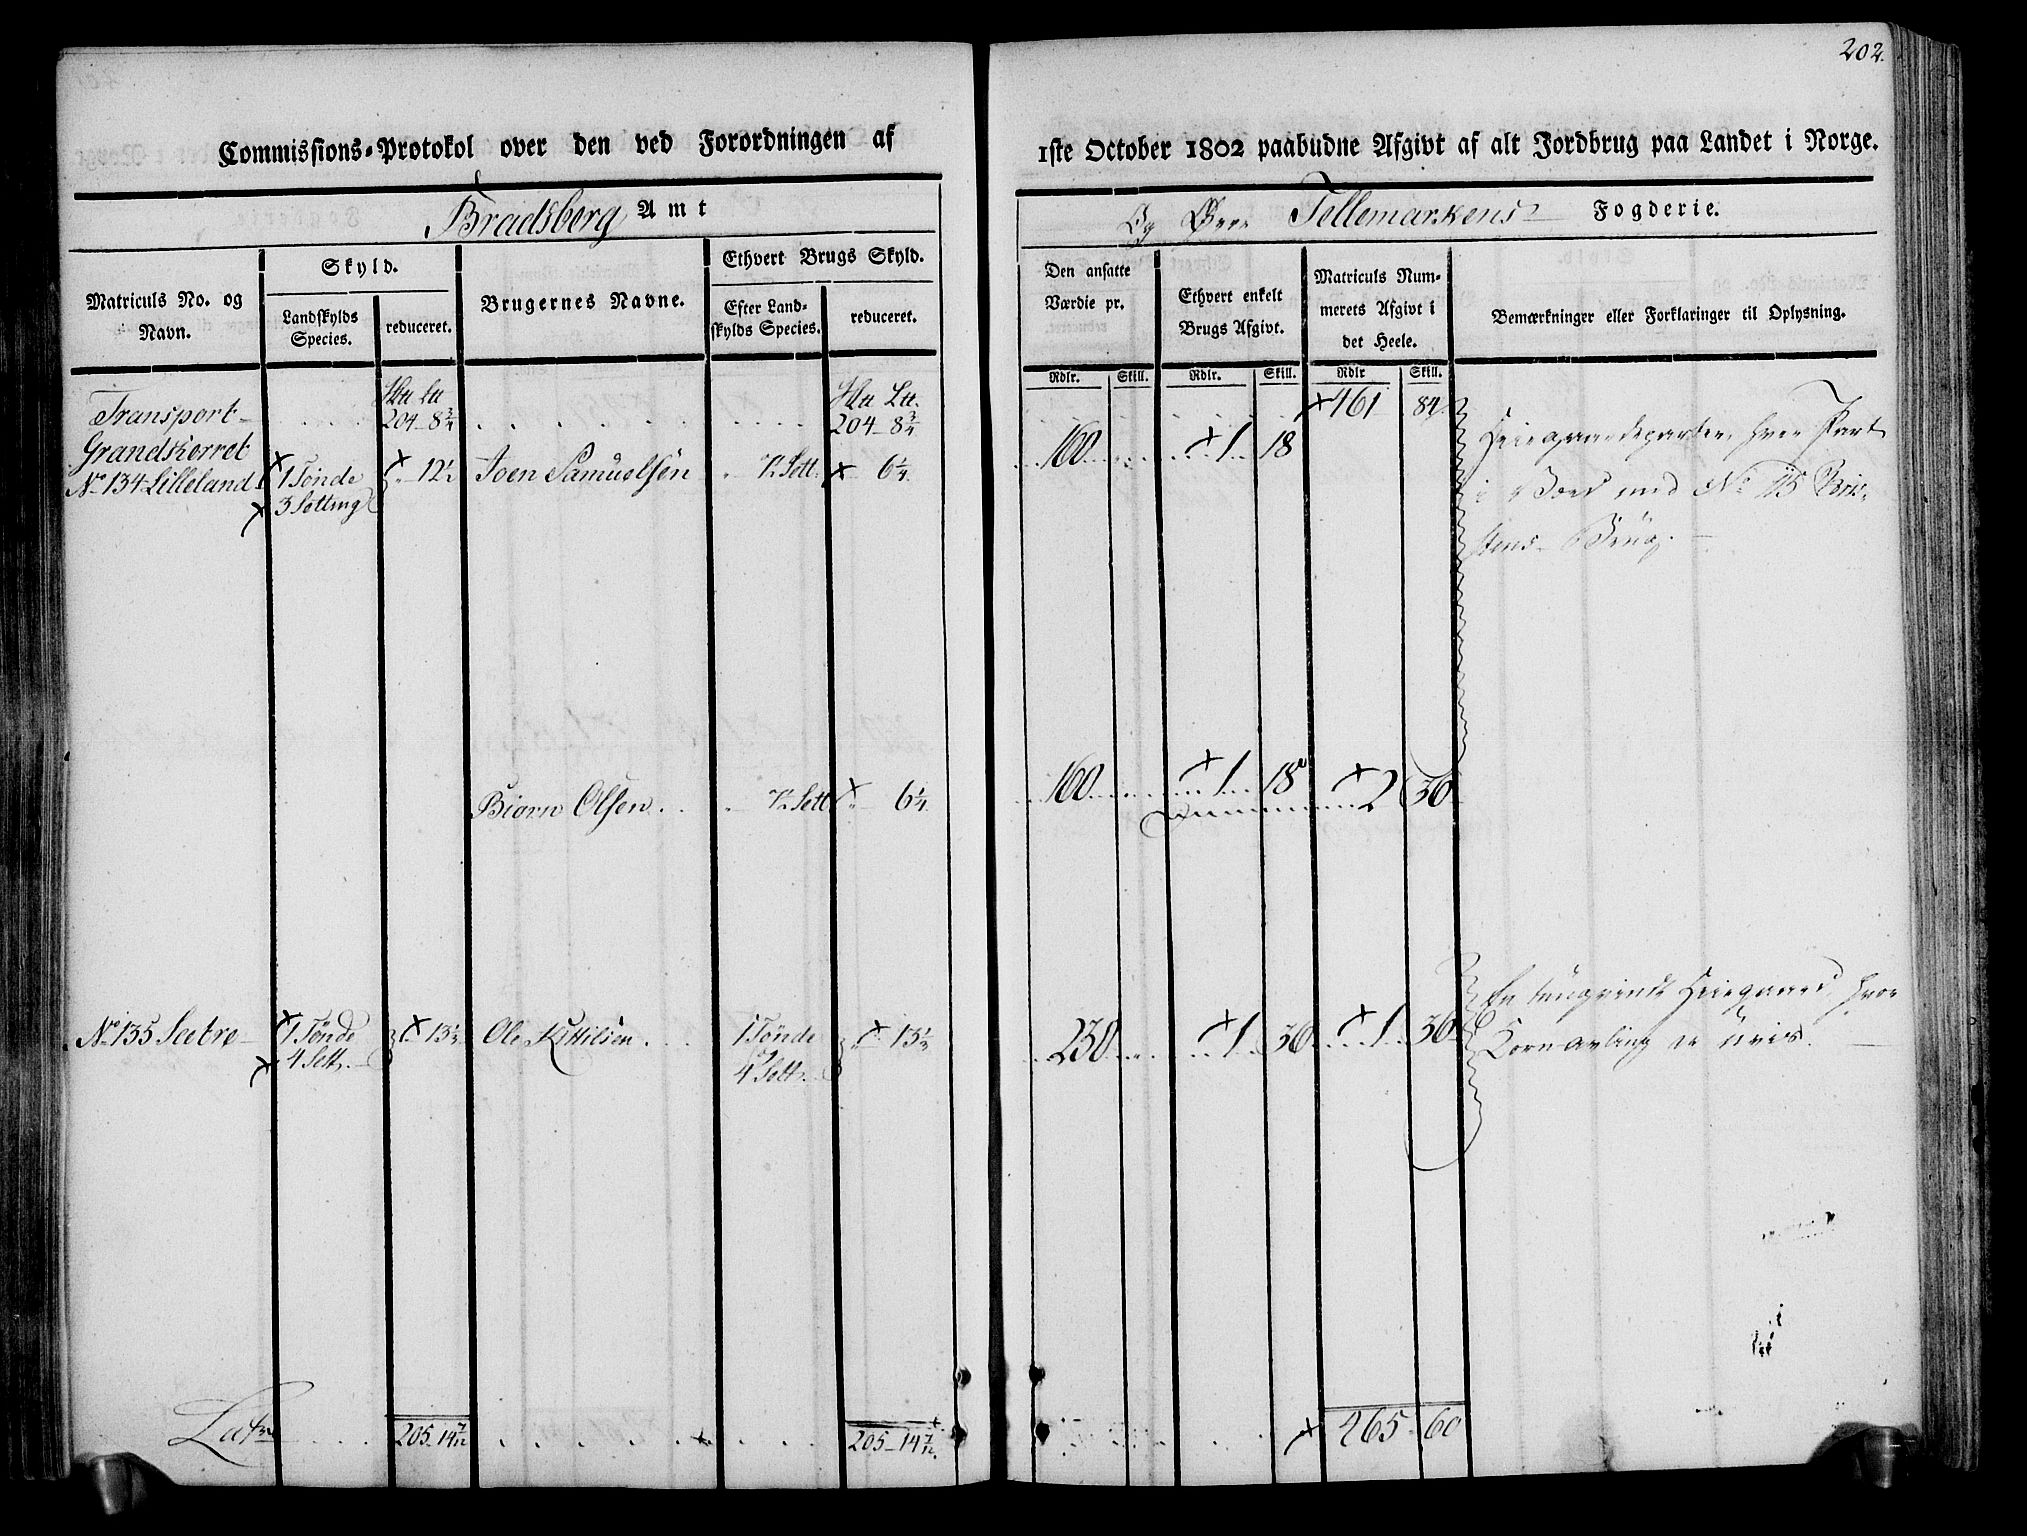 202.
Commissions-Protokol over den ved Forordningen af
1ste October 1802 paabudne Afgivt af alt Jordbrug paa Landet i Norge.
Bradsberg Amt
Og Øvre Tellemarkens Fogderie.
Matriculs No. og Navn.
Skyld.
Landskylds Species.
reduceret.
Brugernes Navne.
Ethvert Brugs Skyld.
Efter Landskylds Species.
reduceret.
Den ansatte Værdie pr.
Ethvert enkelt Brugs Afgivt.
Matriculs Nummerets Afgivt i det Heele.
Bemærkninger eller Forklaringer til Oplysning.
Rdlr. Skill. Rdlr. Skill. Rdlr Skill.
Transport 204 - 8 3/4 204 - 8 3/4 461 84
Grandskerret
No 134 Lilleland 1 Tønde 12 1/2 Joen Samuelsen 6 1/4 160 1 18
3 Setting
i No 115
Brug.
Biørn Olsen 6 1/4 160 1 18 2 36
No 135 Seetre 1 Tønde 13 1/3 Ole Kittilsen 1 Tønde 13 1/3 230 1 36 1 36
4 Sett. 4 Sett.
En tungvindt Heiegaard, hvor
Kornavling er uvis.
Lat. 205 - 14 7/12 205 - 14 7/12 465 60